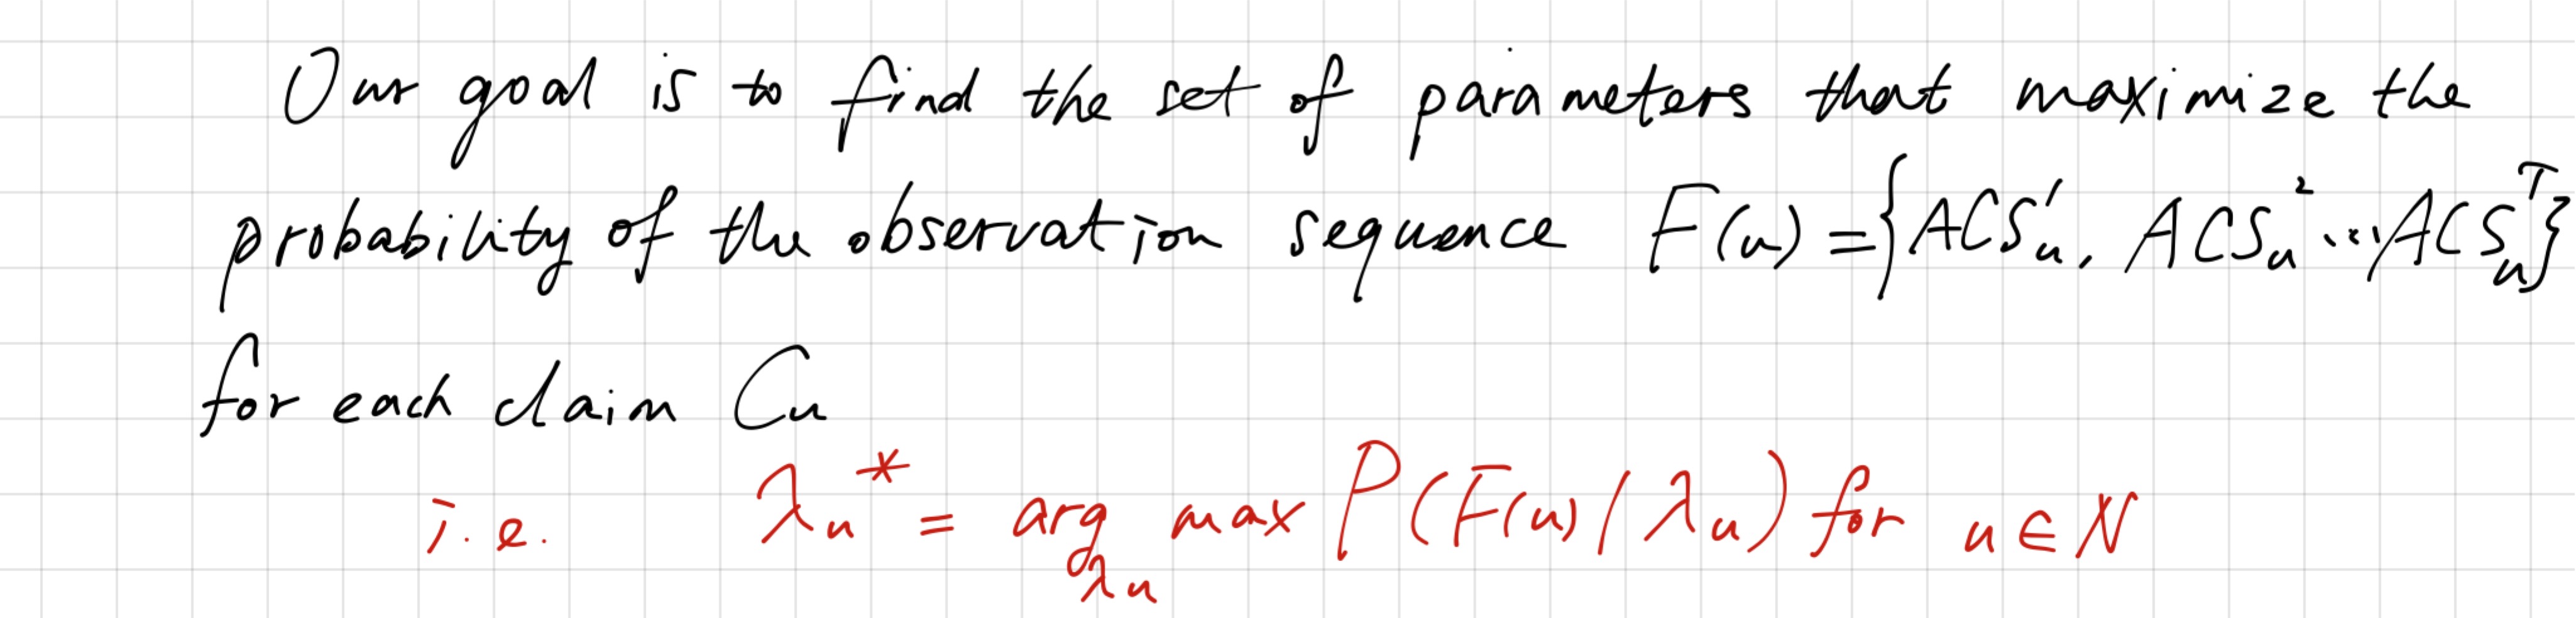 Our goal is to find the set of parameters that maximize the
probability of the observation sequence F(u) = {ACSu¹, ACSu² ... ACSuᵀ}
for each claim Cu
i.e. λu* = arg max P(F(u) / λu) for u ∈ N
λu